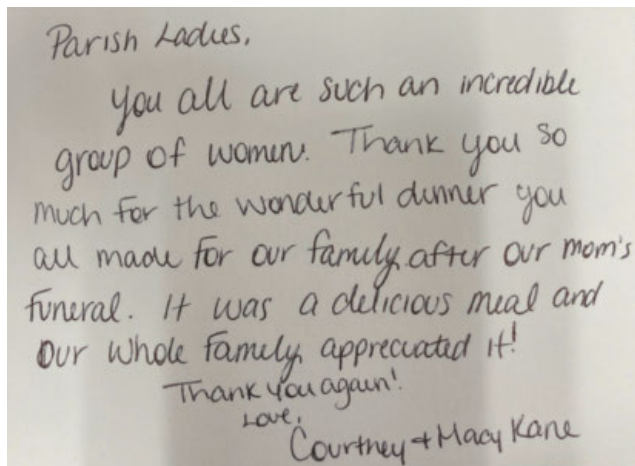 Parish Ladies,
You all are such an incredible
group of women. Thank you so
much for the wonderful dinner you
all made for our family after our mom's
funeral. It was a delicious meal and
our whole family appreciated it!
Thank you again!
Love,
Courtney + Macy Kane